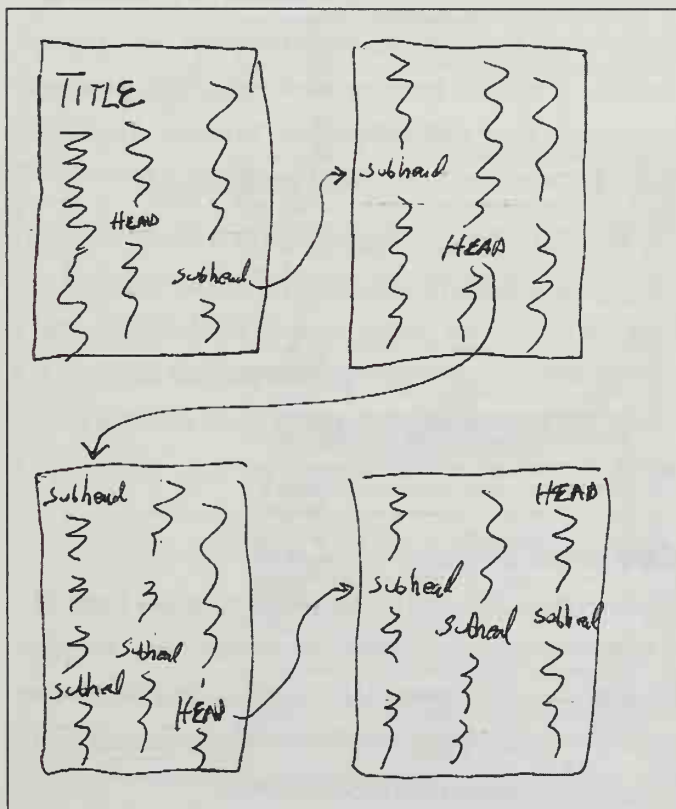 TITLE
HEAD
subhead
subhead
HEAD
subhead
subhead
subhead
HEAD
subhead
subhead
HEAD
subhead